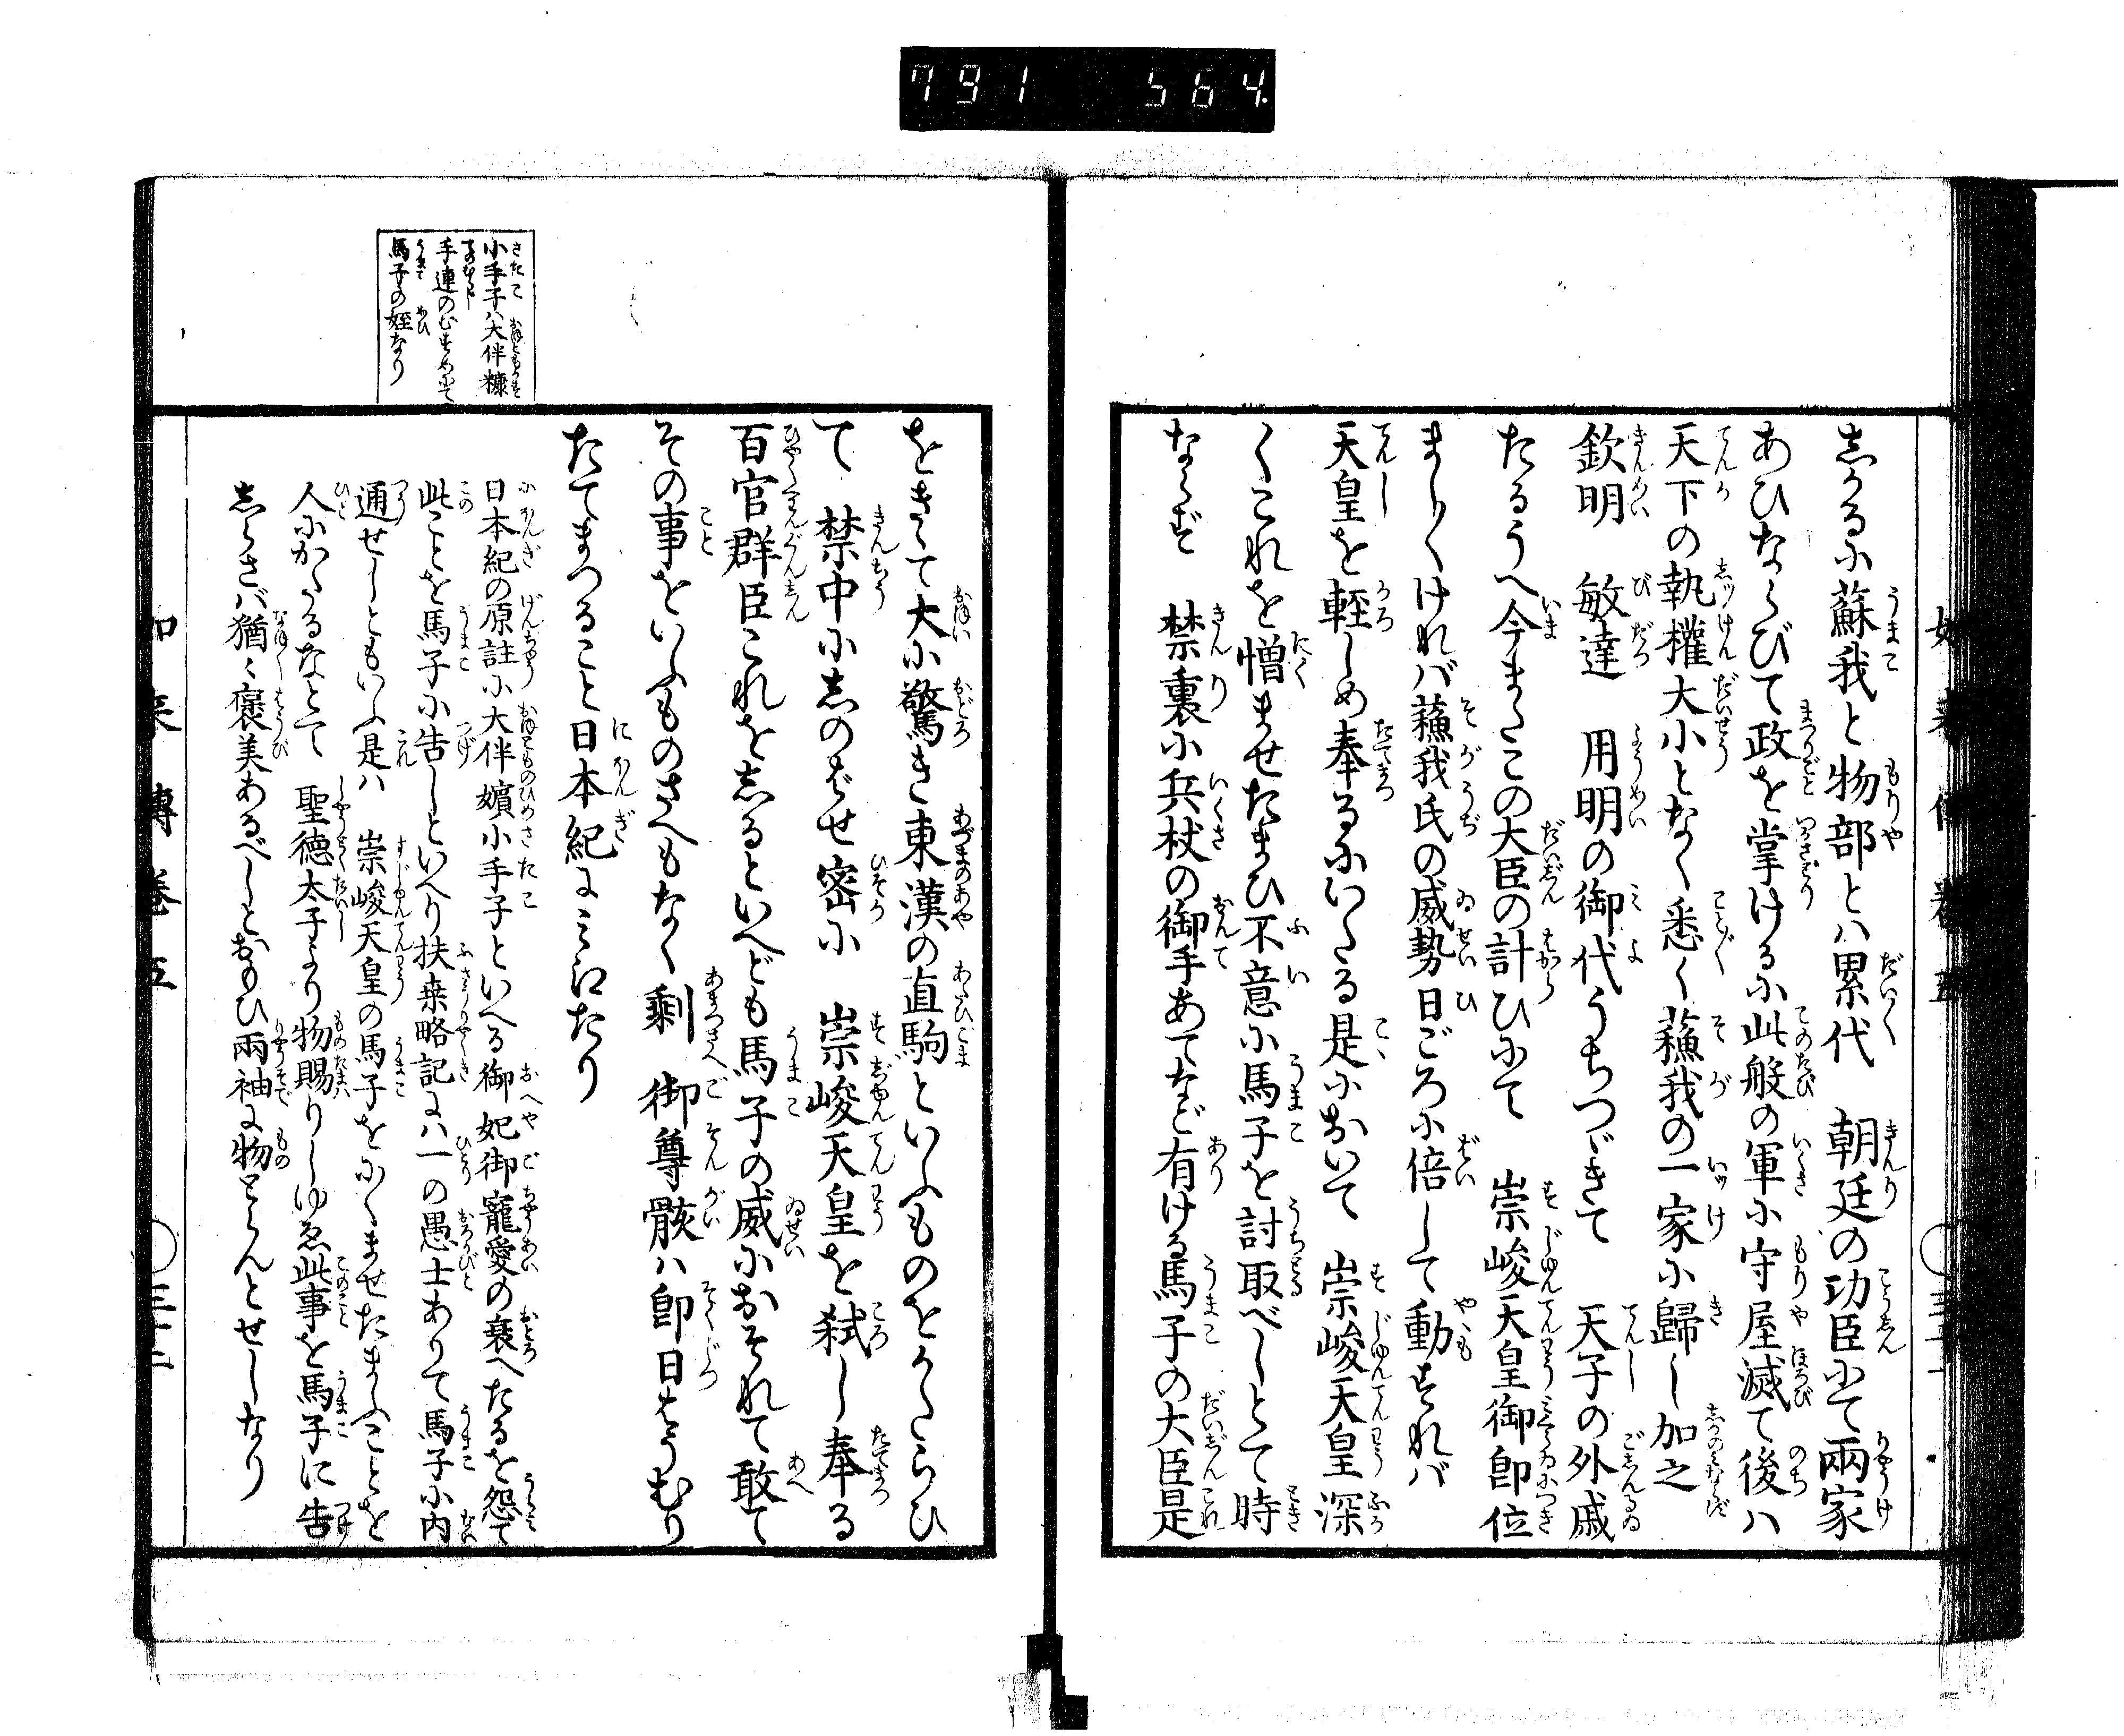 791 564.
しかるに蘇我と物部とハ累代　朝廷の功臣にて兩家
あひならびて政を掌けるに此般の軍に守屋滅て後ハ
天下の執權大小となく悉く蘓我の一家に歸し加之
欽明　敏達　用明の御代うちつゞきて　天子の外戚
たるうへ今またこの大臣の計ひにて　崇峻天皇御即位
まし〳〵けれバ蘓我氏の威勢日ごろに倍して動すれバ
天皇を輕しめ奉るにいたる是において　崇峻天皇深
くこれを憎ませたまひ不意に馬子を討取べしとて時
ならず　禁裏に兵杖の御手あてなど有ける馬子の大臣是
をきゝて大に驚き東漢の直駒といふものをかたらひ
て　禁中にしのばせ密に　崇峻天皇を弑し奉る
百官群臣これをしるといへども馬子の威におそれて敢て
その事をいふものさへもなく剰　御尊骸ハ即日はうむり
たてまつること日本紀に見えたり
小手子ハ大伴糠
手連のむすめにて
馬子の姪なり
日本紀の原註に大伴嬪小手子といへる御妃御寵愛の衰へたるを怨て
此ことを馬子に告しといへり扶桒略記にハ一の愚士ありて馬子に内
通せしともいふ是ハ　崇峻天皇の馬子をにくませたまふことを
人にかたるなとて　聖德太子より物賜りしゆゑ此事を馬子に告
しらさバ猶〳〵褒美あるべしとおもひ兩袖に物とらんとせしなり
如来傳卷五　三十二